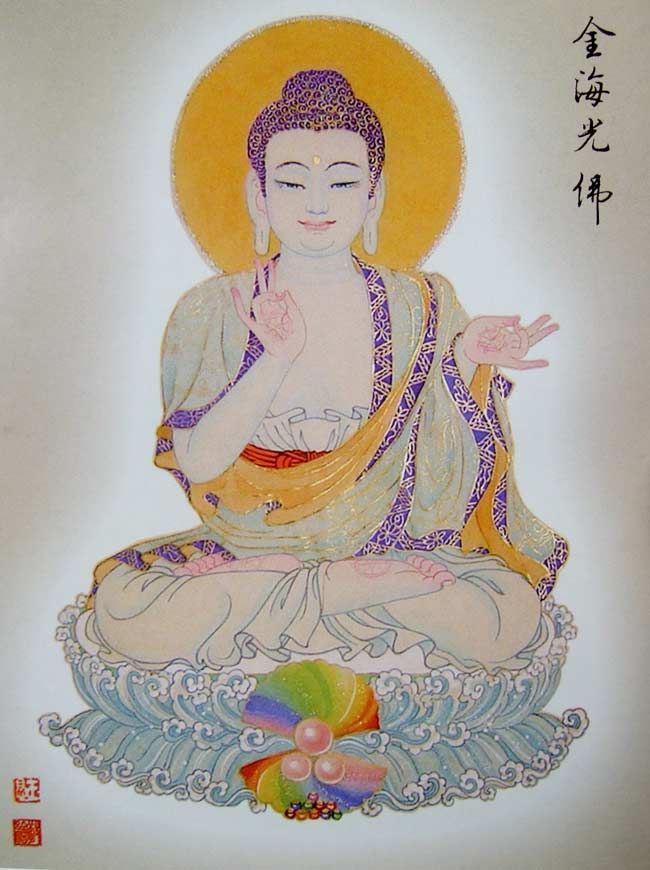 金海光佛